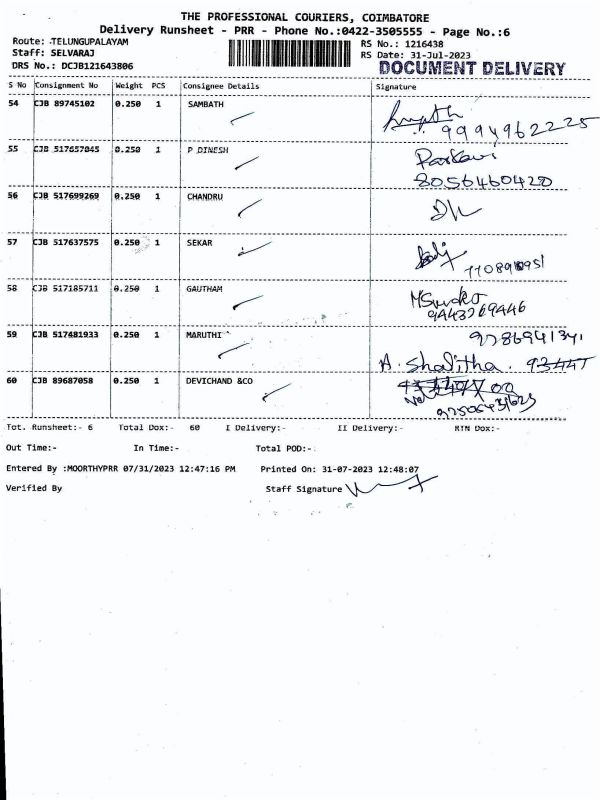 THE PROFESSIONAL COURIERS, COIMBATORE
Delivery Runsheet - PRR - Phone No.:0422-3505555 - Page No.:6
Route: TELUNGUPALAYAM
RS No.: 1216438
Staff: SELVARAJ
RS Date: 31-Jul-2023
DRS No.: DCJB121643806
DOCUMENT DELIVERY
S No Consignment No Weight PCS Consignee Details Signature
54 CJB 89745102 0.250 1 SAMBATH
9994962225
55 CJB 517657045 0.250 1 P DINESH
8056460420
56 CJB 517699269 0.250 1 CHANDRU
57 CJB 517637575 0.250 1 SEKAR
58 CJB 517185711 0.250 1 GAUTHAM
9443269446
59 CJB 517481933 0.250 1 MARUTHI
A. Shalitha.
60 CJB 89687058 0.250 1 DEVICHAND &CO
Tot. Runsheet:- 6 Total Dox:- 60 I Delivery:- II Delivery:- RTN Dox:-
Out Time:- In Time:- Total POD:-
Entered By :MOORTHYPRR 07/31/2023 12:47:16 PM Printed On: 31-07-2023 12:48:07
Verified By Staff Signature